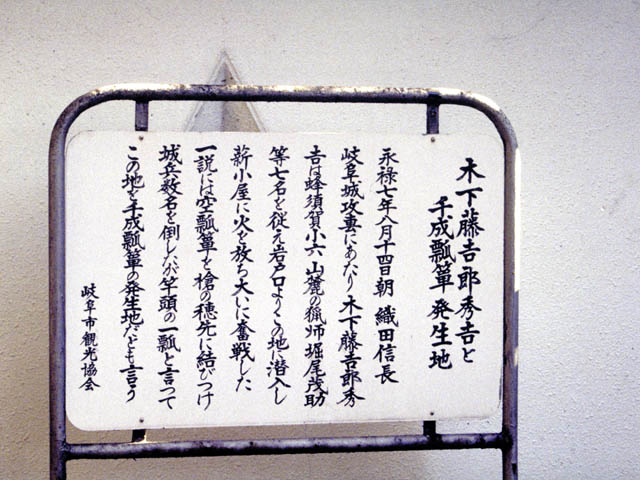 木下藤吉郎秀吉と
千成瓢箪 発生地
永禄七年八月十四日朝 織田信長
岐阜城攻妻にあたり木下藤吉郎秀
吉は蜂須賀小六 山麓の猟师堀尾茂助
等七名を従え岩戸口よりこの地に潜入し
薪小屋に火を放ち大いに奮戦した
一説には空瓢箪を槍の穂先に結びつけ
城兵数名を倒したが竿頭の一瓢と言って
この地を千成瓢箪の発生地だとも言う
岐阜市観光協会